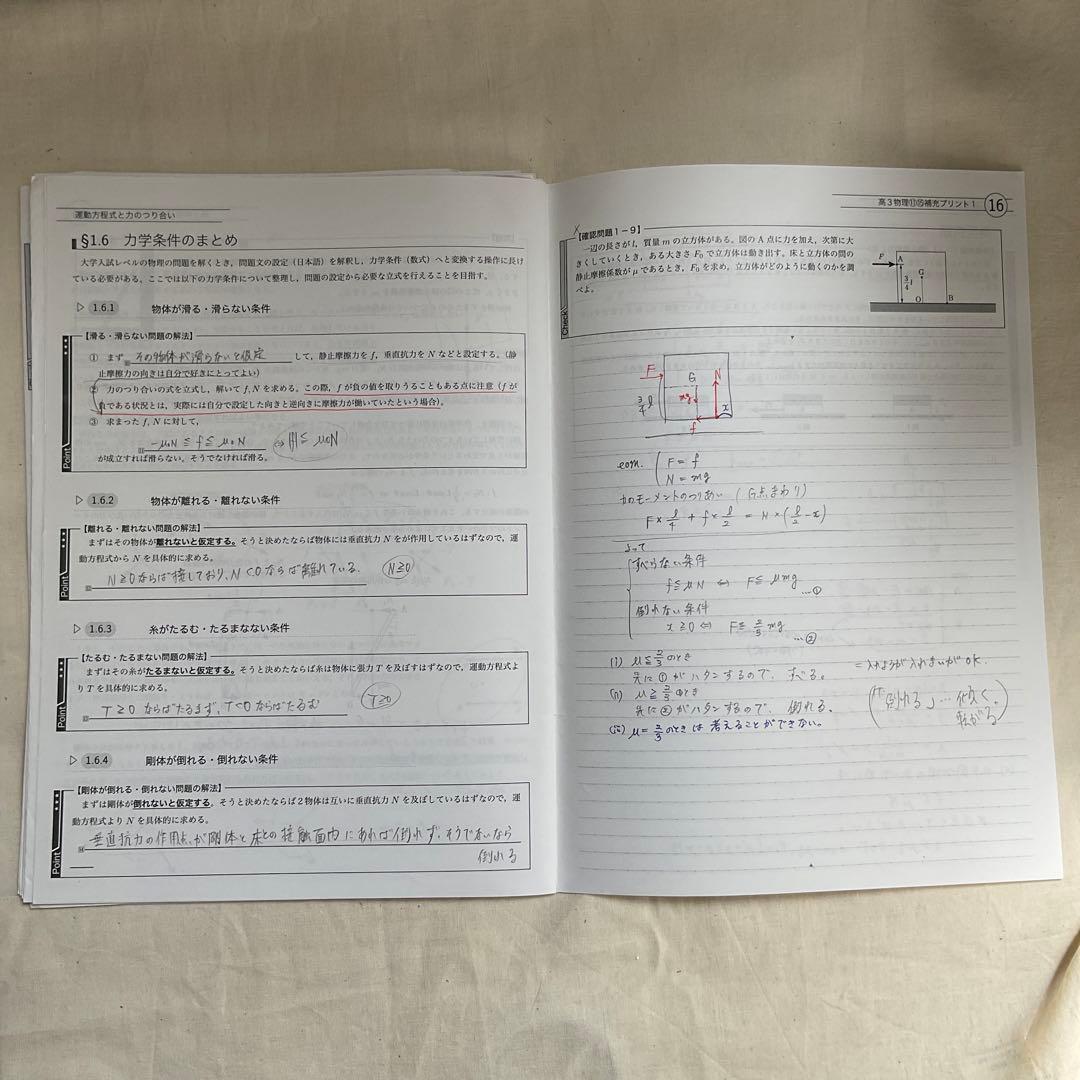 運動方程式と力のつり合い
§1.6 力学条件のまとめ
大学入試レベルの物理の問題を解くとき，問題文の設定（日本語）を解釈し，力学条件（数式）へと変換する操作に長け
ている必要がある。ここでは以下の力学条件について整理し，問題の設定から必要な立式を行えることを目指す。
▷ 1.6.1 物体が滑る・滑らない条件
【滑る・滑らない問題の解法】
① まず その物体が滑らないと仮定 して，静止摩擦力を f，垂直抗力を N などと設定する。（静
止摩擦力の向きは自分で好きにとってよい）
② 力のつり合いの式を立式し，解いて f, N を求める。この際，f が負の値を取りうることもある点に注意（f が
負である状況とは，実際には自分で設定した向きと逆向きに摩擦力が働いていたという場合）。
③ 求まった f, N に対して，
-μ₀N ≦ f ≦ μ₀N ⇔ |f| ≦ μ₀N
が成立すれば滑らない。そうでなければ滑る。
Point
▷ 1.6.2 物体が離れる・離れない条件
【離れる・離れない問題の解法】
まずはその物体が離れないと仮定する。そうと決めたならば物体には垂直抗力 N をが作用しているはずなので，運
動方程式から N を具体的に求める。
N≧0ならば接しており、N<0ならば離れている。 N≧0
Point
▷ 1.6.3 糸がたるむ・たるまなない条件
【たるむ・たるまない問題の解法】
まずはその糸がたるまないと仮定する。そうと決めたならば糸は物体に張力 T を及ぼすはずなので，運動方程式よ
り T を具体的に求める。
T≧0 ならばたるまず、T<0ならばたるむ T≧0
Point
▷ 1.6.4 剛体が倒れる・倒れない条件
【剛体が倒れる・倒れない問題の解法】
まずは剛体が倒れないと仮定する。そうと決めたならば２物体は互いに垂直抗力 N を及ぼしているはずなので，運
動方程式より N を具体的に求める。
垂直抗力の作用点が剛体と床との接触面内にあれば倒れず、そうでないなら
倒れる
Point
高３物理⑪⑮補充プリント１ 16
【確認問題１−９】
一辺の長さが l，質量 m の立方体がある。図の A 点に力を加え，次第に大
きくしていくとき，ある大きさ F₀ で立方体は動き出す。床と立方体の間の
静止摩擦係数が μ であるとき，F₀ を求め，立方体がどのように動くのかを調
べよ。
Check
F A
G
3/4 l
O B
F G N
mg
3/4 l
f x
eom. F = f
N = mg
力のモーメントのつりあい (G点まわり)
F × l/4 + f × l/2 = N × (l/2 - x)
よって
すべらない条件
f ≦ μN ⇔ F ≦ μmg …①
倒れない条件
x ≧ 0 ⇔ F ≦ 2/3 mg …②
(i) μ ≦ 2/3 のとき
先に①がハタンするので、すべる。
=入れようが入れまいがOK.
(ii) μ ≧ 2/3 のとき
先に②がハタンするので、倒れる。
(「倒れる」… 傾く。
転がる)
(iii) μ = 2/3 のときは考えることができない。